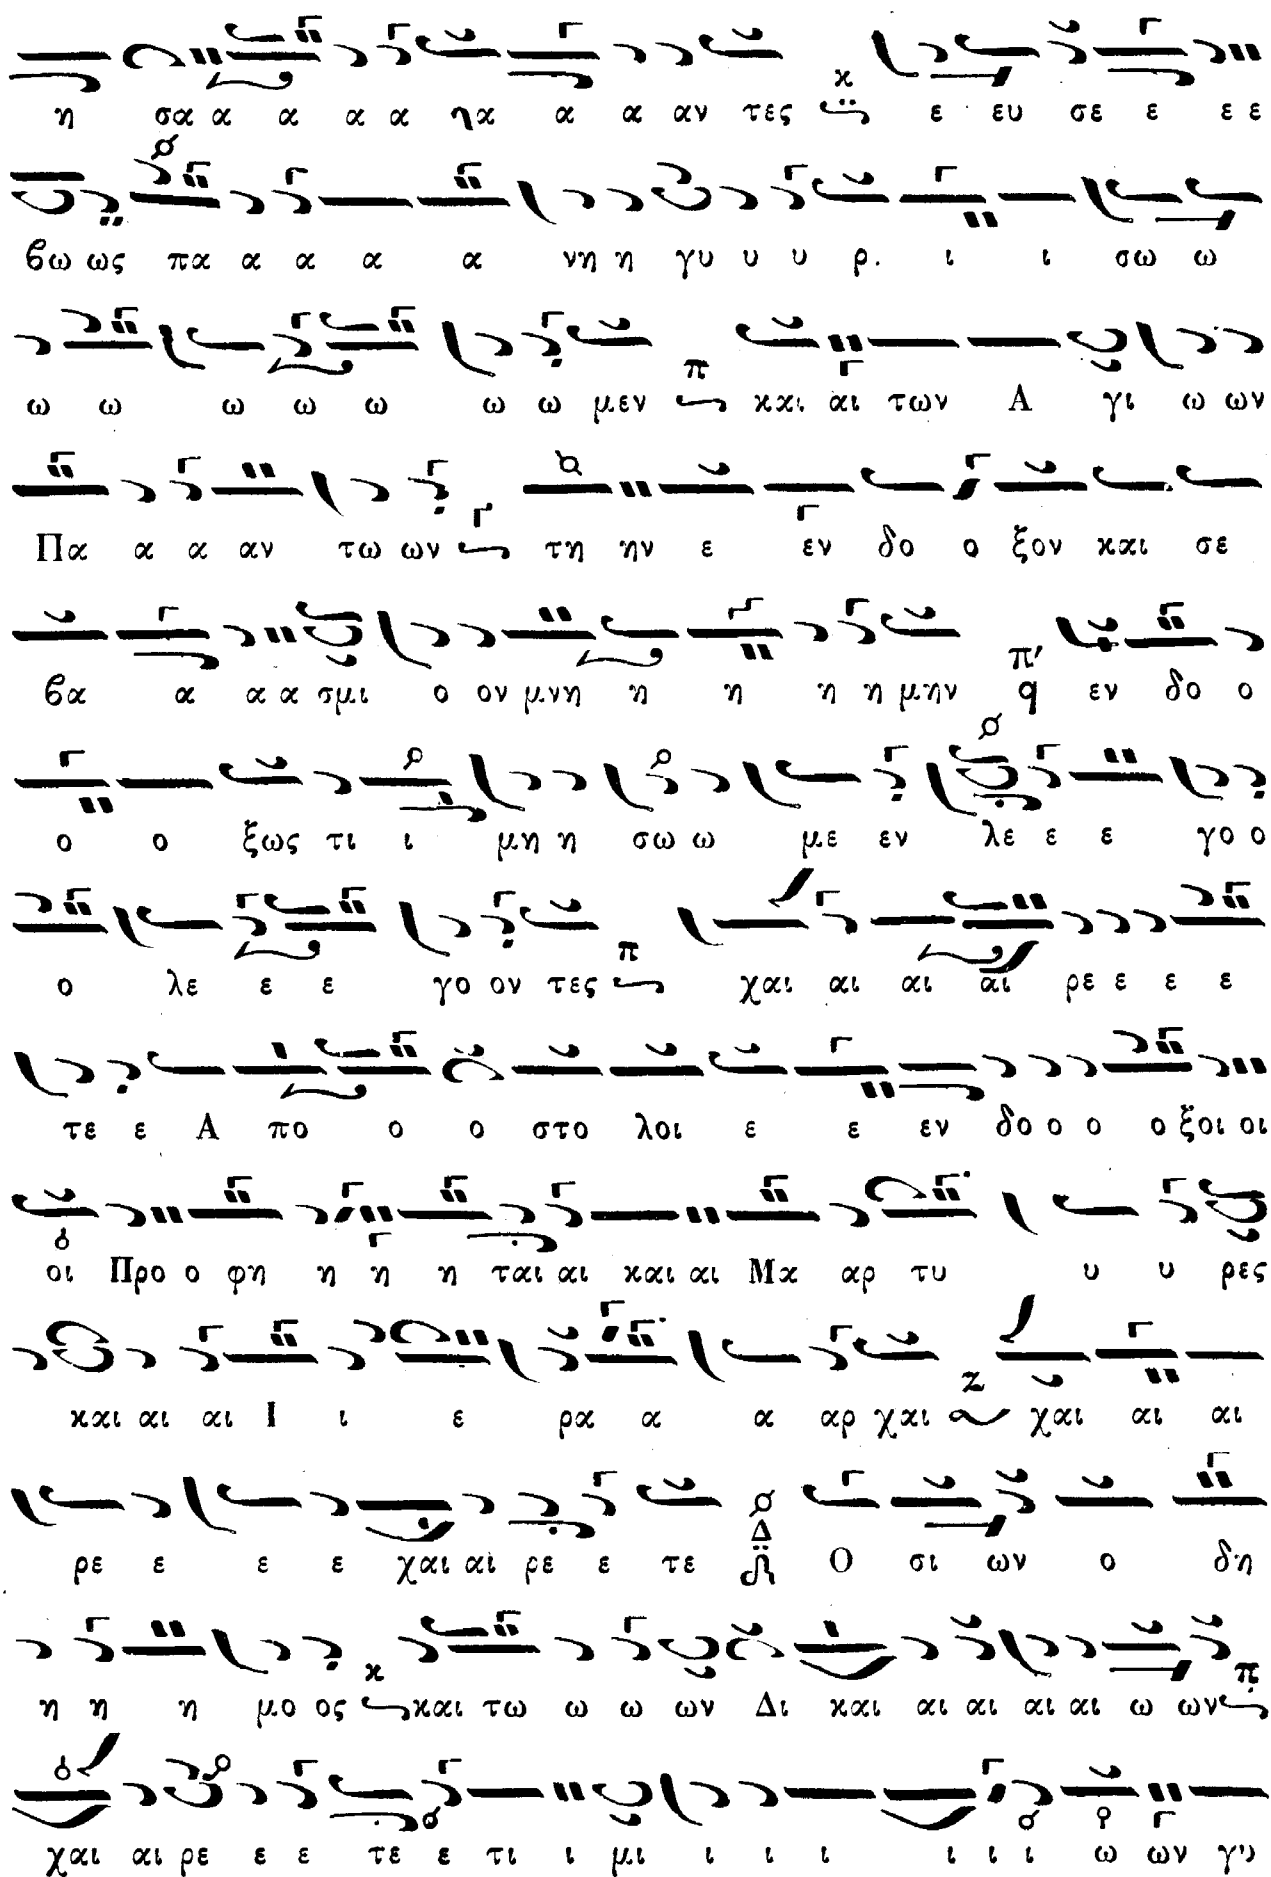 η σα α α α α ηα α α αν τες κ ε ευ σε ε ε ε
βω ως πα α α α α νη η γυ υ υ ρ. ι ι σω ω
ω ω ω ω ω ω ω μεν π και αι των Α γι ω ων
Πα α α αν τω ων Γ τη ην ε εν δο ο ξον και σε
βα α α α σμι ο ον μνη η η η η μην π' q εν δο ο
ο ο ξως τι ι μη η σω ω με εν λε ε ε γο ο
ο λε ε ε γο ον τες π χαι αι αι αι ρε ε ε ε
τε ε Α πο ο ο στο λοι ε ε εν δο ο ο ο ξοι οι
οι Προ ο φη η η η ται αι και αι Μα αρ τυ υ υ ρες
και αι αι Ι ι ε ρα α α αρ χαι Z χαι αι αι
ρε ε ε ε χαι αι ρε ε τε Δ Ο σι ων ο δη
η η η μο ος κ και τω ω ω ων Δι και αι αι αι αι ω ων π
χαι αι ρε ε ε τε ε τι ι μι ι ι ι ι ι ι ω ων γυ